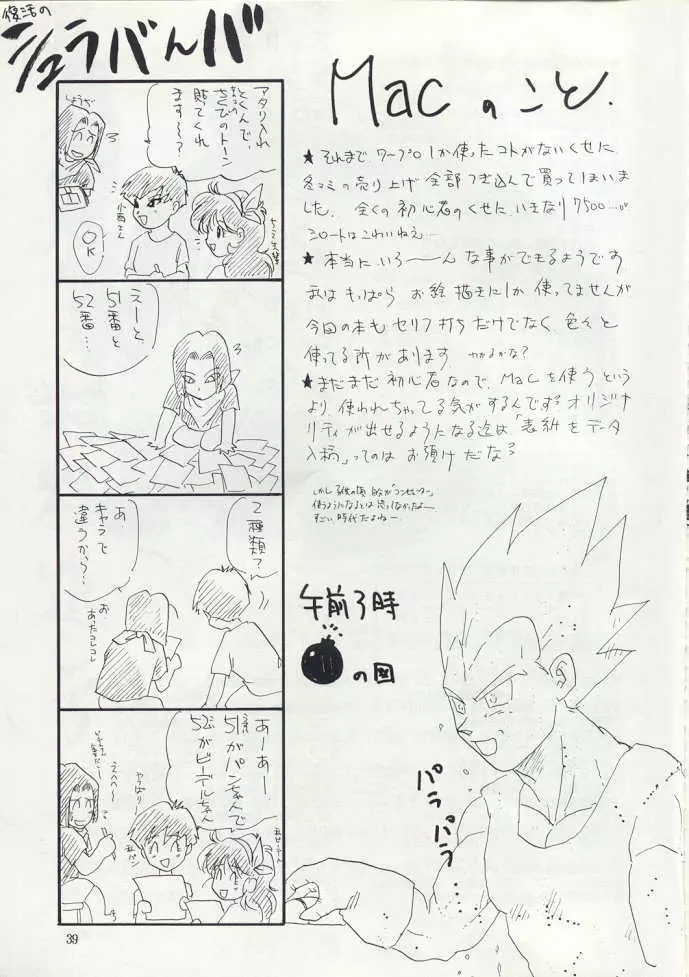 復活の
シュラバんバ
アタリ入れ
とくんで、
さくびのトーン
貼てくれ
ます〜?
OK
えーと、
51番と
52番…
2種類?
あ
キャラで
違うから?
お
あったコレコレ
あーあー
51番がパンちゃんで
52がビーデルちゃん
やっぱり
えへへー
39
Macのこと.
★それまでワープロしか使ったコトがないくせに
冬コミの売り上げ全部つぎ込んで買ってしまいま
した。全くの初心者のくせにいきなり7500…。
シロートはこわいねえ…
★本当にいろーーんな事ができるようです
私はもっぱらお絵描きにしか使ってませんが
今回の本もセリフ打ちだけでなく色々と
使ってる所があります。わかるかな?
★まだまだ初心者なので、Macを使うという
より、使われちゃってる気がするんですオリジナ
リティが出せるようになる迄は「表紙をデータ
入稿」ってのはお預けだな?
使うようになるとは思ってなかったよー
すごい時代だよねー
午前3時
の図
パラ
パラ